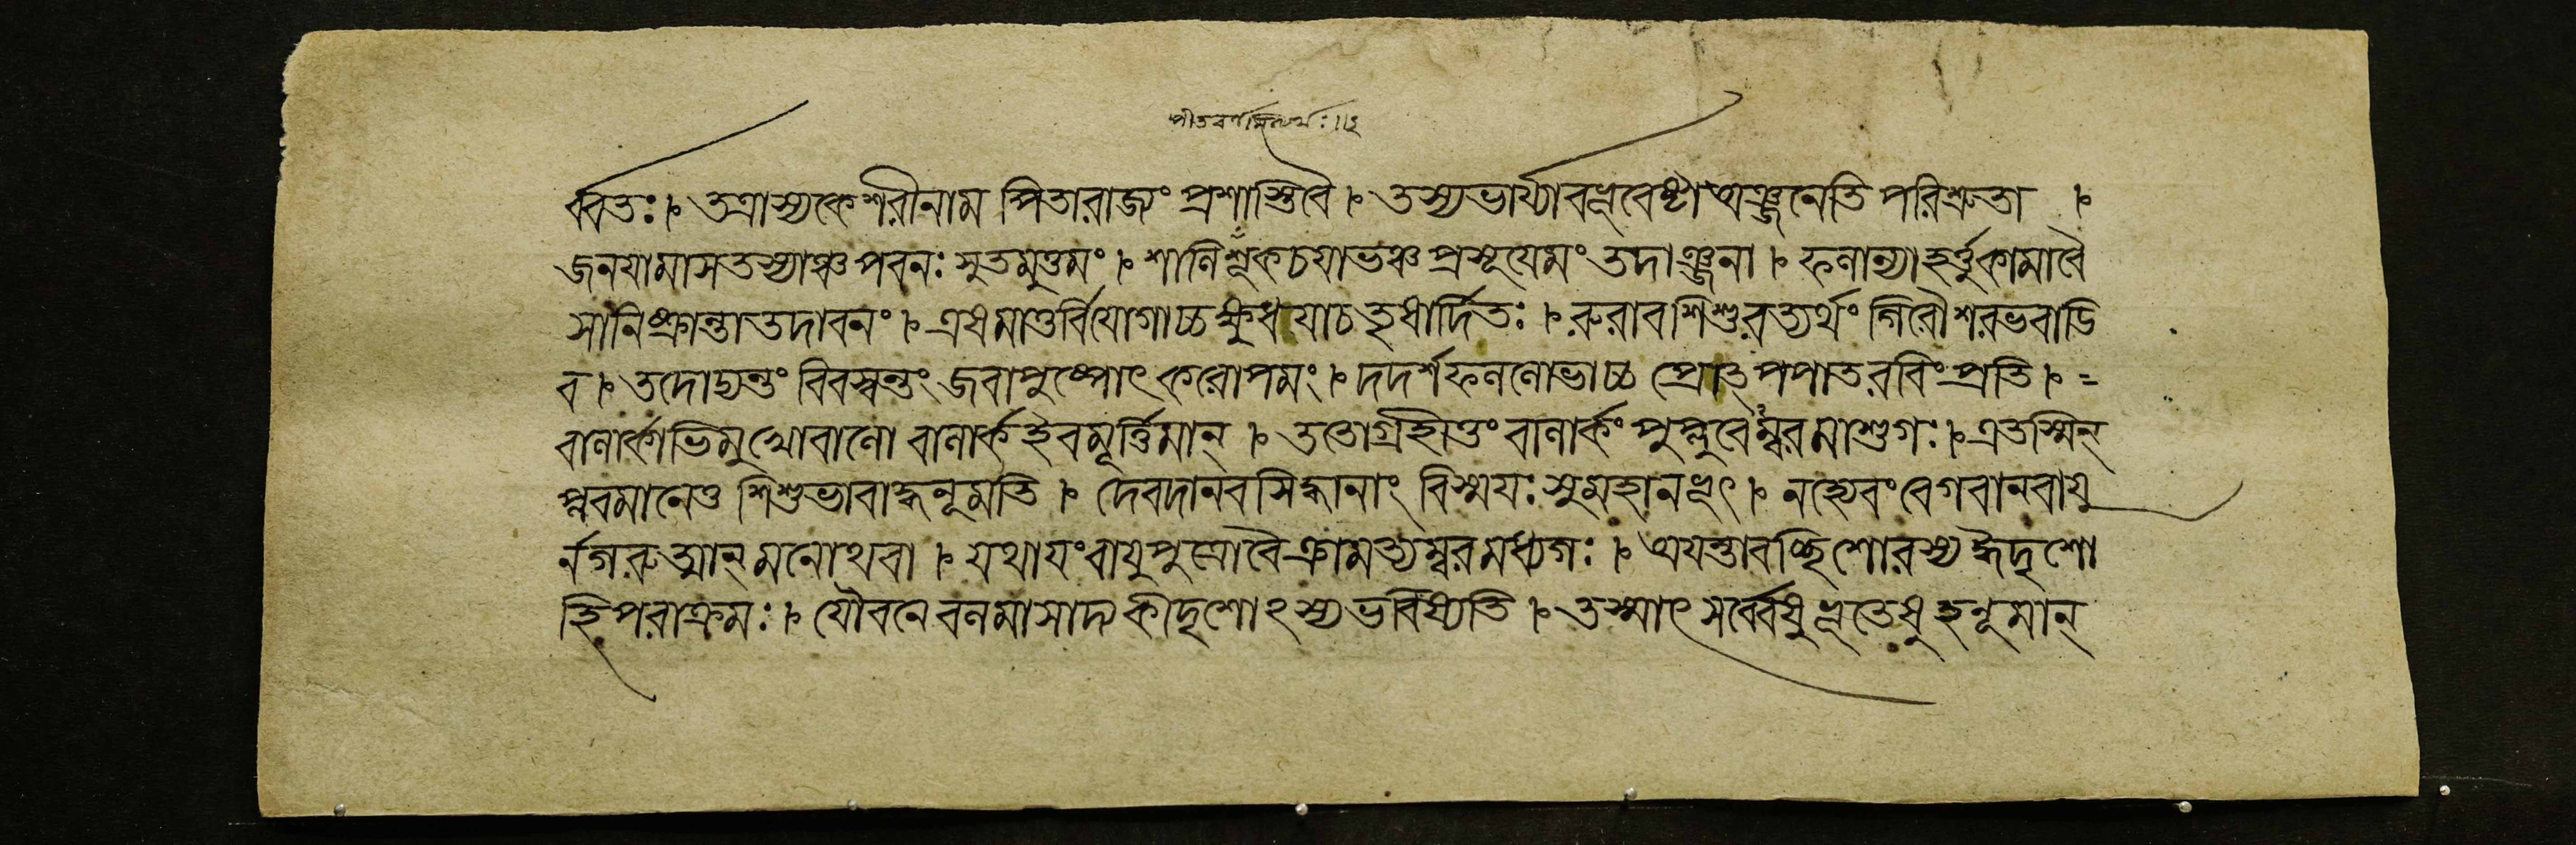 পীতবর্ণমিত্যর্থঃ।।২
র্ব্বতঃ। তত্রাস্যকেশরীনাম পিতারাজ্যং প্রশাস্তিবৈ। তস্যভার্য্যাবভূবেষ্টাঅঞ্জনেতি পরিশ্রুতা ।
জনযামাসতস্যাঞ্চপবনঃ সুতমুত্তমং। শালিশূকচযাভঞ্চপ্রসূযেমং তদাঞ্জনা। ফলান্যাহর্ত্তুকামাবৈ
সানিষ্ক্রান্তাতদাবনং। এষমাতুর্বিযোগাচ্চক্ষুধযাচতৃষার্দিতঃ। রুরাবশিশুরত্যর্থং গিরৌশরভরাডি
ব। তদোদ্যন্তং বিবস্বন্তং জবাপুষ্পোৎকরোপমং। দদর্শফললোভাচ্চ প্রোৎপপাতরবিংপ্রতি। =
বালার্কাভিমুখোবালো বালার্কইবমূর্ত্তিমান্। ততোগ্রহিতুং বালার্কং পুপ্লুবেম্বরমাশুগঃ। এতস্মিন্
প্লবমানেতু শিশুভাবাদ্ধনূমতি। দেবদানবসিদ্ধানাং বিস্ময়ঃ সুমহানভূৎ। নহ্যেবং বেগবানবাযু
র্নগরুত্মান্ মনোথবা। যথাযংবাযুপুত্রোবৈক্রামত্যম্বরমধ্যগঃ। অযন্তাবচ্ছিশোরস্যহ্যীদৃশো
হিপরাক্রমঃ। যৌবনেবলমাসাদ্য কীদৃশোঽস্যভবিষ্যতি। তস্মাৎসর্ব্বেষুভূতেষুহনূমান্